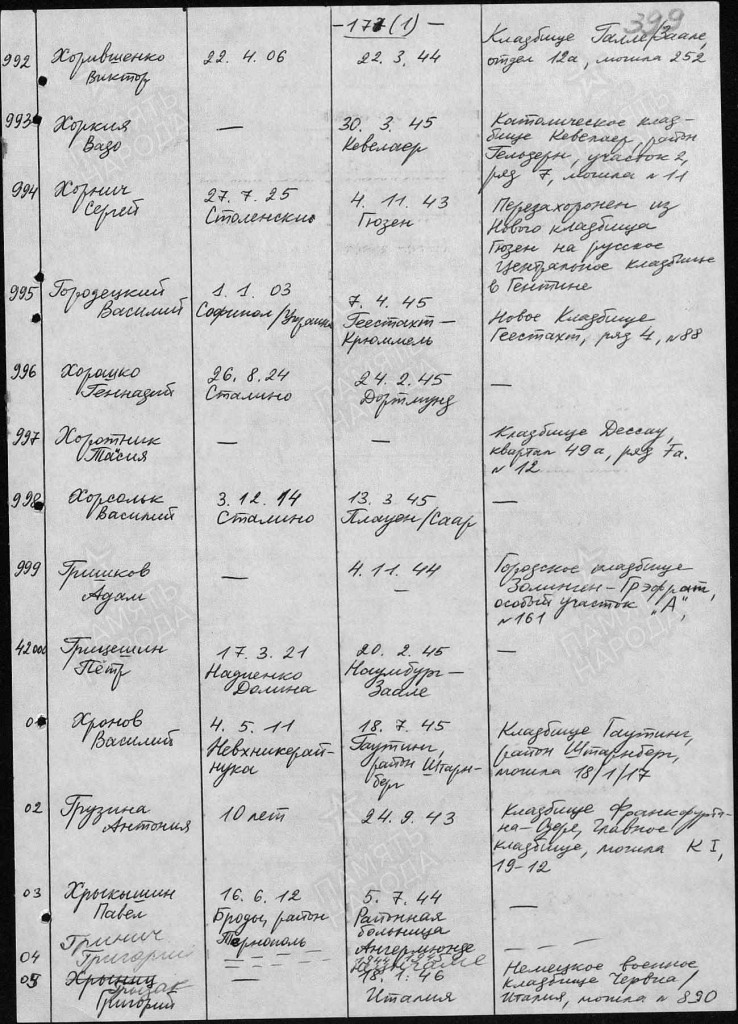 399
- 177(1) -
992 Хорившенко 22. 4. 06 22. 3. 44 Кладбище Галле/Заале,
Виктор отдел 12а, могила 252
993 Хоркия — 30. 3. 45 Католическое клад-
Вазо Кевелаер бище Кевелаер, район
Гельдерн, участок 2,
ряд 7, могила №11
994 Хорнич 27. 7. 25 4. 11. 43 Перезахоронен из
Сергей Столенскию Гюзен Нового кладбища
Гюзен на русское
Центральное кладбище
в Гентине
995 Городецкий 1. 1. 03 7. 4. 45 Новое Кладбище
Василий Софипол/Украина Геестахт- Геестахт, ряд 4, №88
Крюммель
996 Хорошко 26. 8. 24 24. 2. 45 —
Геннадий Сталино Дортмунд
997 Хоротник — — Кладбище Дессау,
Тасия квартал 49а, ряд 7а.
№12
998 Хорсольк 3. 12. 14 13. 3 45 —
Василий Сталино Плауен/Саар
999 Гришков — 4. 11. 44 Городское кладбище
Адам — Золинген-Грэфрат,
особый участок "А",
№161
42000 Грицешин 17. 3. 21 20. 2. 45 —
Пётр Надиенко Наумбург-
Долина Заале
01 Хронов 4. 5. 11 18. 7. 45 Кладбище Гаутинг,
Василий Невхникерай- Гаутинг, район Штарнберг,
нука район Штарн- могила 18/1/17
берг
02 Грузина 10 лет 24. 9. 43 Кладбище Франкфурт-
Антония на-Одере, Главное
кладбище, могила К I,
19-12
03 Хрыкышин 16. 6. 12 5. 7. 44 —
Павел Броды, район Районная
Тернополь больница
Ангермюнде
04 Гринич — — —
Григорий
05 Хрыниц — 18. 1. 46 Немецкое военное
Григорий Италия кладбище Червиа/
Италия, могила №890
ПАМЯТЬ
НАРОДА